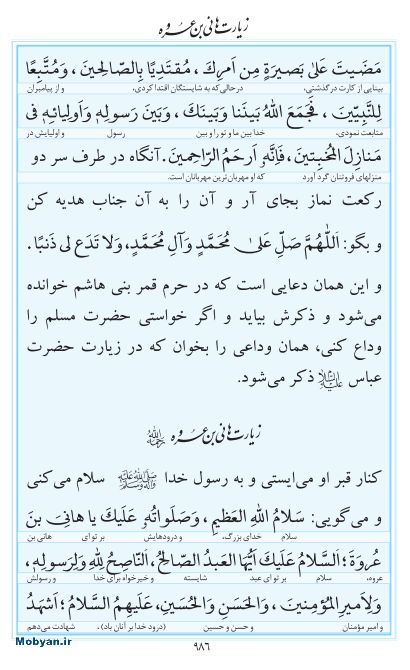 زیارت هانی بن عروه
مَضَیتَ عَلیٰ بَصیرَةٍ مِن اَمرِكَ ، مُقتَدِیًا بِالصّالِحینَ ، وَمُتَّبِعًا
بینایی از کارت در گذشتی، درحالی‌که به شایستگان اقتدا کردی، و از پیامبران
لِلنَّبِیّینَ ، فَجَمَعَ اللهُ بَینَنا وَبَینَكَ ، وَبَینَ رَسولِهٖ وَاَولِیائِهٖ فی
متابعت نمودی، خدا بین ما و تو را و بین رسول و اولیایش در
مَنازِلِ المُخبِتینَ ، فَاِنَّهٗ اَرحَمُ الرّاحِمینَ . آنگاه در طرف سر دو
منزلهای فروتنان گرد آورد که او مهربان‌ترین مهربانان است.
رکعت نماز بجای آر و آن را به آن جناب هدیه کن
و بگو: اَللّٰهُمَّ صَلِّ عَلیٰ مُحَمَّدٍ وَآلِ مُحَمَّدٍ، وَلا تَدَع لی ذَنبًا .
و این همان دعایی است که در حرم قمر بنی هاشم خوانده
می‌شود و ذکرش بیاید و اگر خواستی حضرت مسلم را
وداع کنی، همان وداعی را بخوان که در زیارت حضرت
عباس علیه‌السلام ذکر می‌شود.
زیارت هانی بن عروه رحمه‌الله
کنار قبر او می‌ایستی و به رسول خدا ﷺ سلام می‌کنی
و می‌گویی: سَلامُ اللهِ العَظیمِ ، وَصَلَواتُهٗ عَلَیكَ یا هانِیَ بنَ
سلام خدای بزرگ، و درودهایش بر تو ای هانی بن
عُروَةَ ؛ اَلسَّلامُ عَلَیكَ اَیُّهَا العَبدُ الصّالِحُ ، اَلنّاصِحُ لِلّٰهِ وَلِرَسولِهٖ ،
عروه، سلام بر تو ای عبد شایسته و خیرخواه برای خدا و رسولش
وَلِاَمیرِ المُؤمِنینَ ، وَالحَسَنِ وَالحُسَینِ، عَلَیهِمُ السَّلامُ ؛ اَشهَدُ
و امیر مؤمنان و حسن و حسین (درود خدا بر آنان باد)، شهادت می‌دهم
۹۸۶
Mobyan.ir